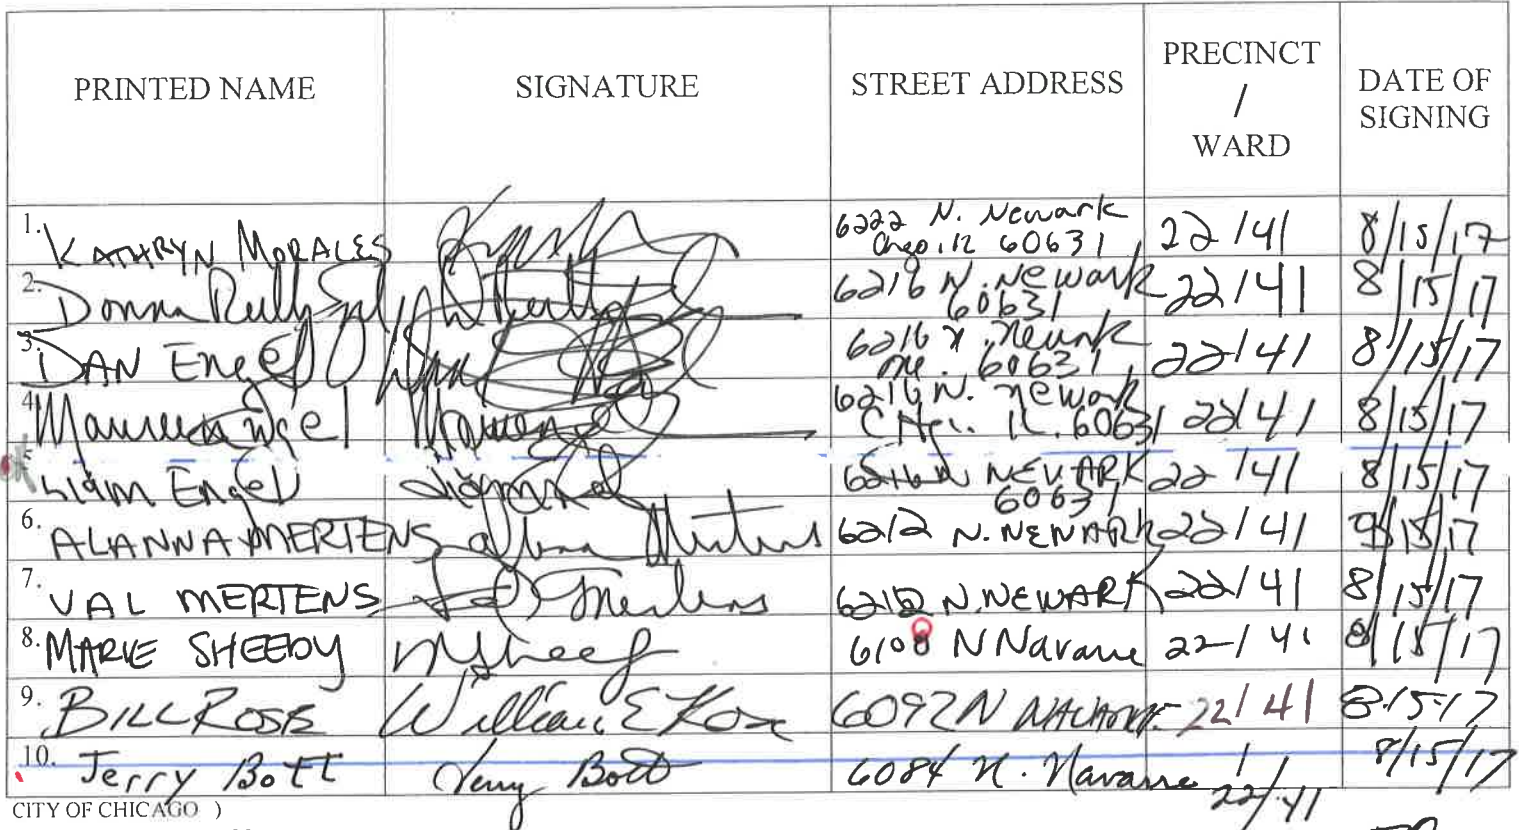 PRINTED NAME SIGNATURE STREET ADDRESS PRECINCT / WARD DATE OF SIGNING
1. KATHRYN MORALES 6222 N. Newark 22/41 8/15/17
60631
2. Donna 6216 N. Newark 22/41 8/15/17
60631
3. DAN Engel 6216 N. Newark 22/41 8/15/17
60631
4. Maureen Engel 6216 N. Newark 22/41 8/15/17
IL. 60631
5 Liam Engel 6216 N NEWARK 22/41 8/15/17
60631
6. ALANNA MERTENS Alanna Mertens 6212 N. NEWARK 22/41 8/15/17
7. VAL MERTENS Val Mertens 6212 N. NEWARK 22/41 8/15/17
8. MARIE SHEEDY 6108 N Navarre 22/41 8/15/17
9. BILL ROSE William E Rose 6092 N NAVARRE 22/41 8-15-17
10. Jerry Bott Jerry Bott 6084 N. Navarre 22/41 8/15/17
CITY OF CHICAGO )